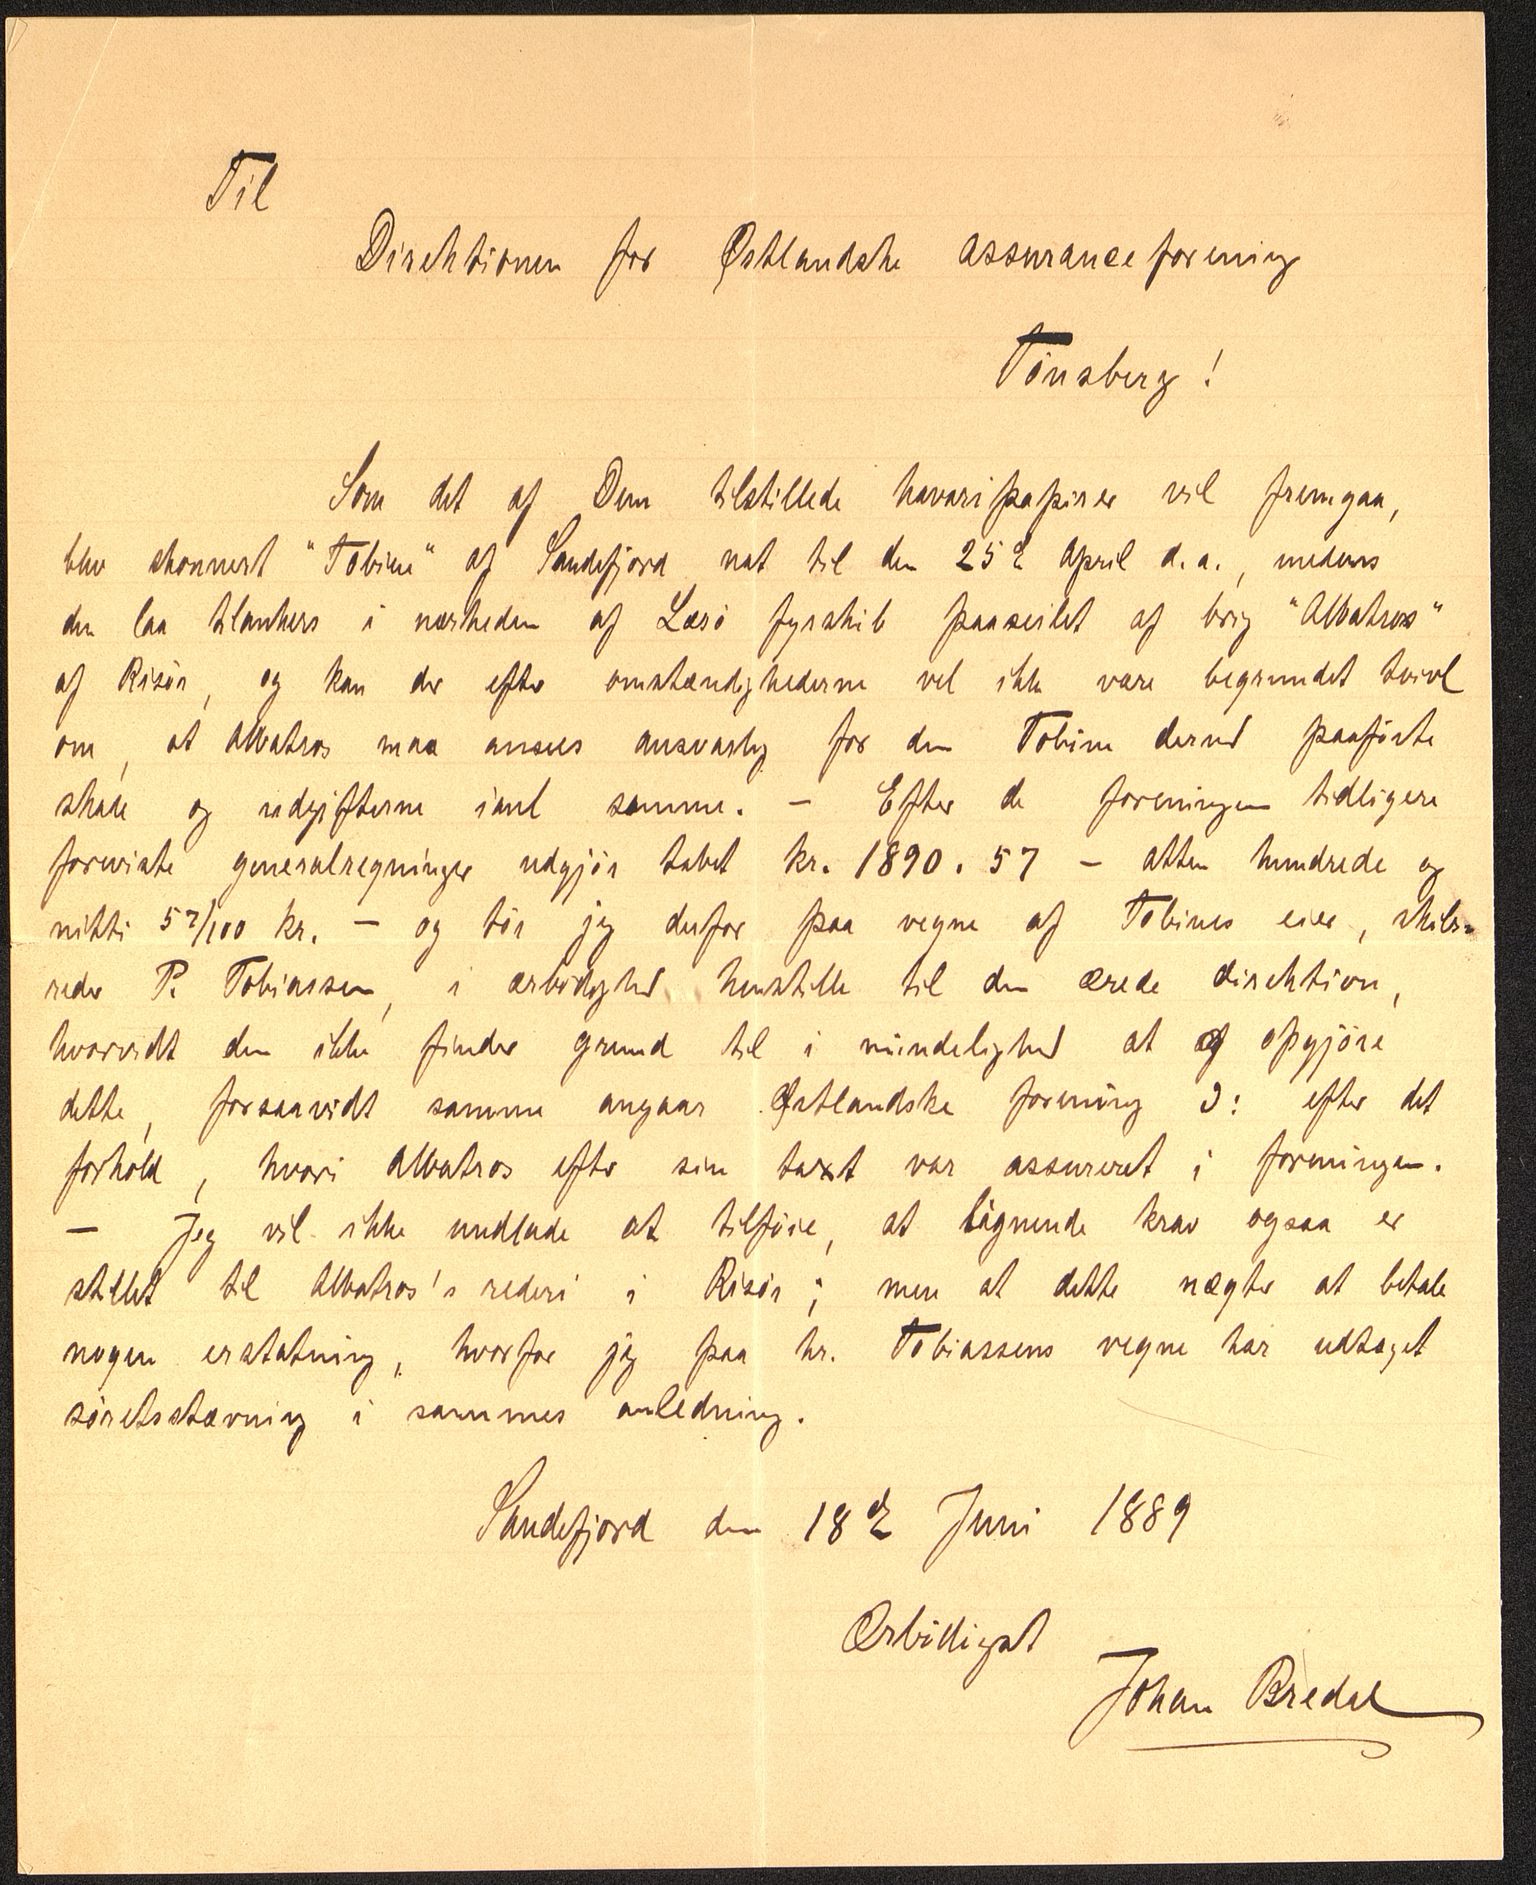 Til
Direktionen for Østlandske assuranceforening
Tönsberg!
Som det af Dem tilstillede havaripapirer vil fremgaa,
blev skonnert "Tobine" af Sandefjord nat til den 25de April d.a., medens
den laa tilankers i nærheden af Læsö fyrskib paaseilet af brig "Albatros"
af Risör, og kan der efter omstændighederne vel ikke være begrundet tvivl
om, at Albatros maa ansees ansvarlig for den Tobine derved paaförte
skade og udgifterne ianl samme. – Efter de foreningen tidligere
foreviste generalregninger udgjör tabet kr. 1890.57 – atten hundrede og
nitti 57/100 kr. – og tör jeg derfor paa vegne af Tobines eier, skibs-
reder P. Tobiassen, i ærbödighed henstille til den ærede direktion,
hvorvidt den ikke finder grund til i mindelighed at opgjöre
dette, forsaavidt samme angaar Østlandske forening ɔ: efter det
forhold, hvori Albatros efter sin taxt var assureret i foreningen.
– Jeg vil ikke undlade at tilföie, at lignende krav ogsaa er
stillet til Albatros's rederi i Risör; men at dette nægter at betale
nogen erstatning, hvorfor jeg paa hr. Tobiassens vegne har udtaget
söretsstævning i sammes anledning.
Sandefjord den 18de Juni 1889
Ærbödigst
Johan Bredal